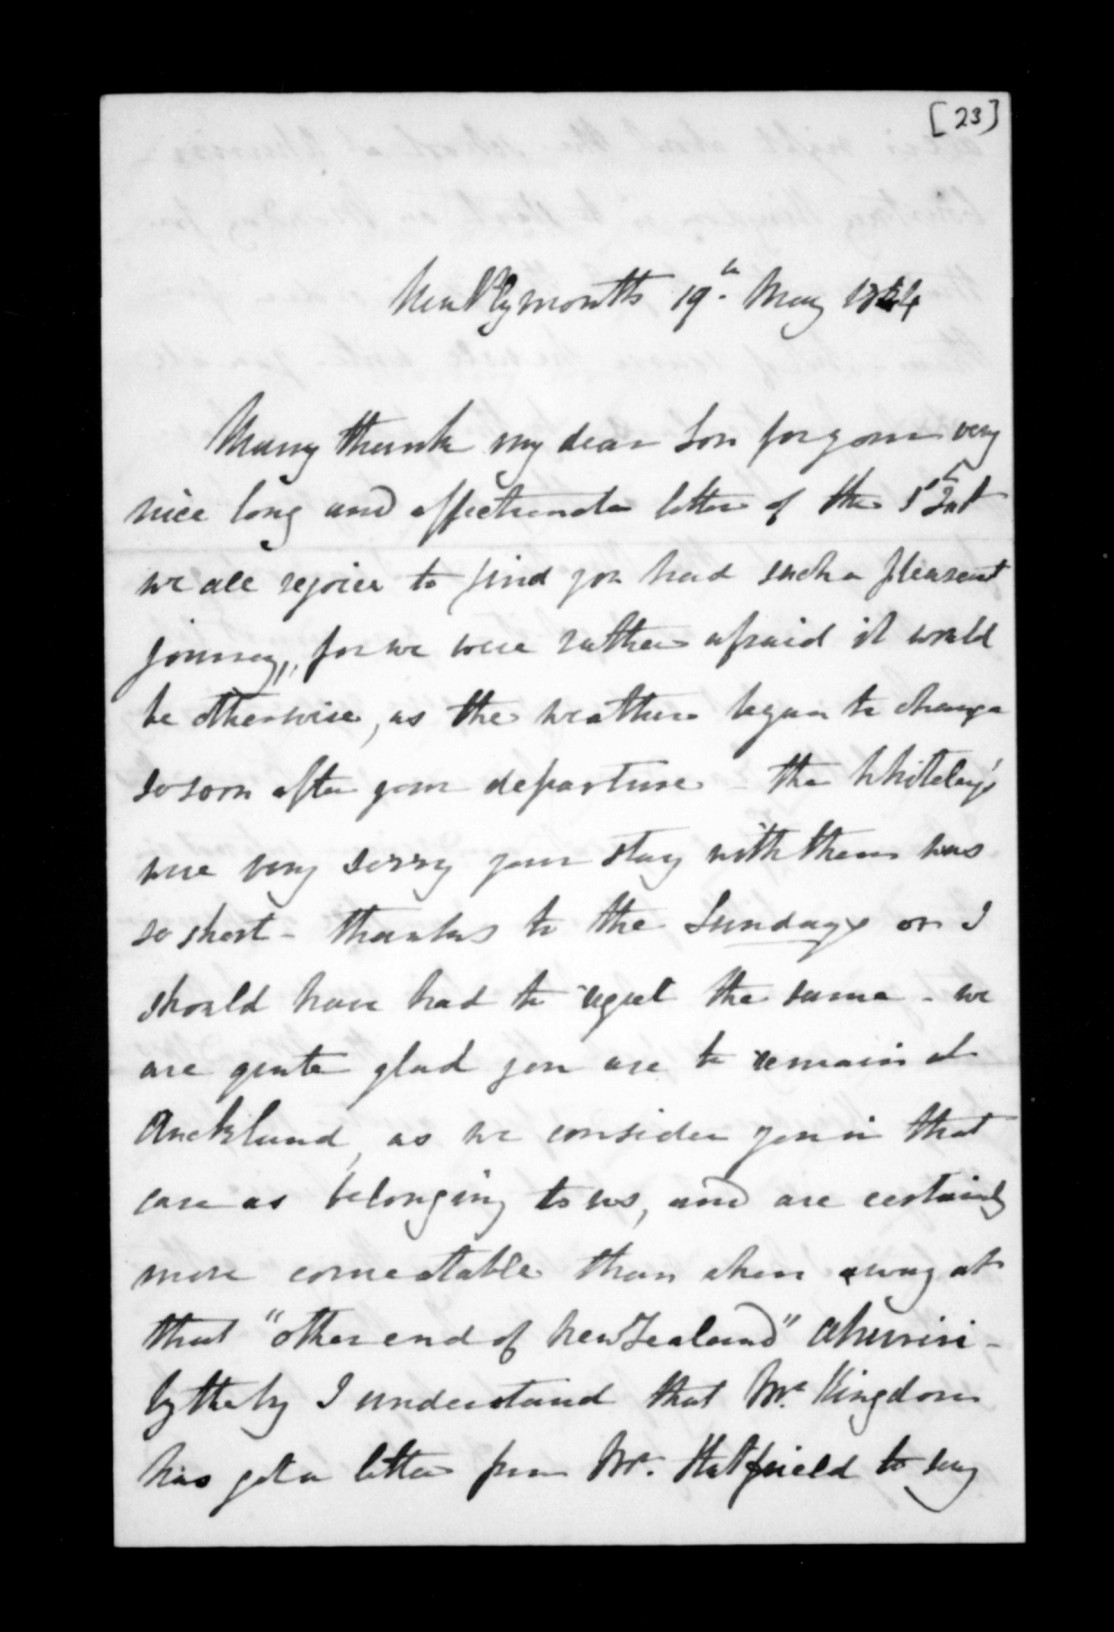 [23]
New Plymouth 19th May 1854
Many thanks my dear Son for your very
nice long and affectionate letter of the 5th Inst
we all rejoice to find you had such a pleasant
journey, for we were rather afraid it would
be otherwise, as the weather began to change
so soon after your departure - the Whiteley's
were very sorry your stay with them was
so short - thanks to the Sundays or I
should have had to regret the same - we
are quite glad you are to remain at
Auckland, as we consider you in that
case as belonging to us, and are certainly
more comeatable than when away at
that "other end of New Zealand" Ahuriri -
by the by I understand that Mr. Kingdon
has got a letter from Mr. Hatfield to say